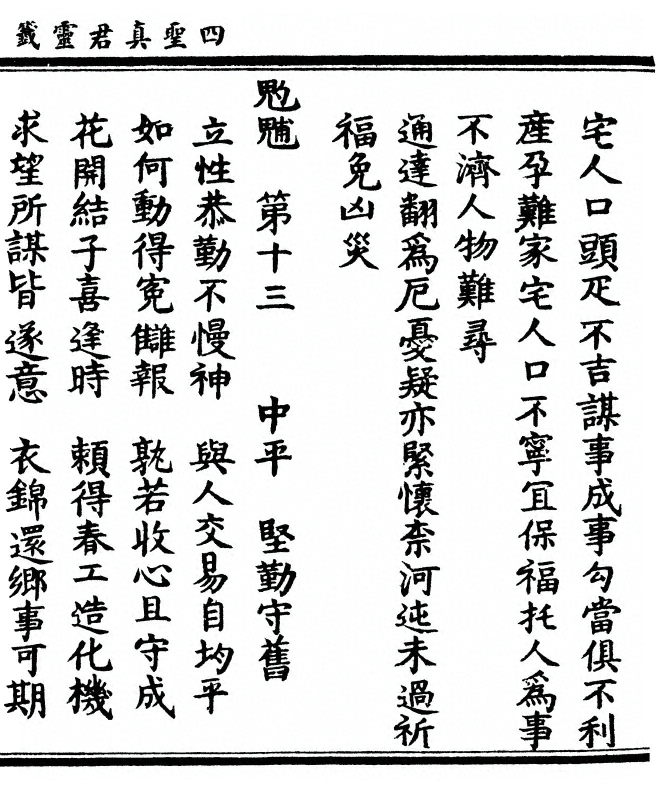 四聖真君靈籤
宅人口頭疋不吉謀事成事勾當俱不利
産孕難家宅人口不寧冝保福托人爲事
不濟人物難尋
通達翻爲厄憂疑亦緊懷柰河迍未過祈
福免凶災
第十三 中平 堅勤守舊
立性恭勤不慢神 與人交易自均平
如何動得寃讎報 孰若收心且守成
花開結子喜逢時 頼得春工造化機
求望所謀皆遂意 衣錦還鄉事可期